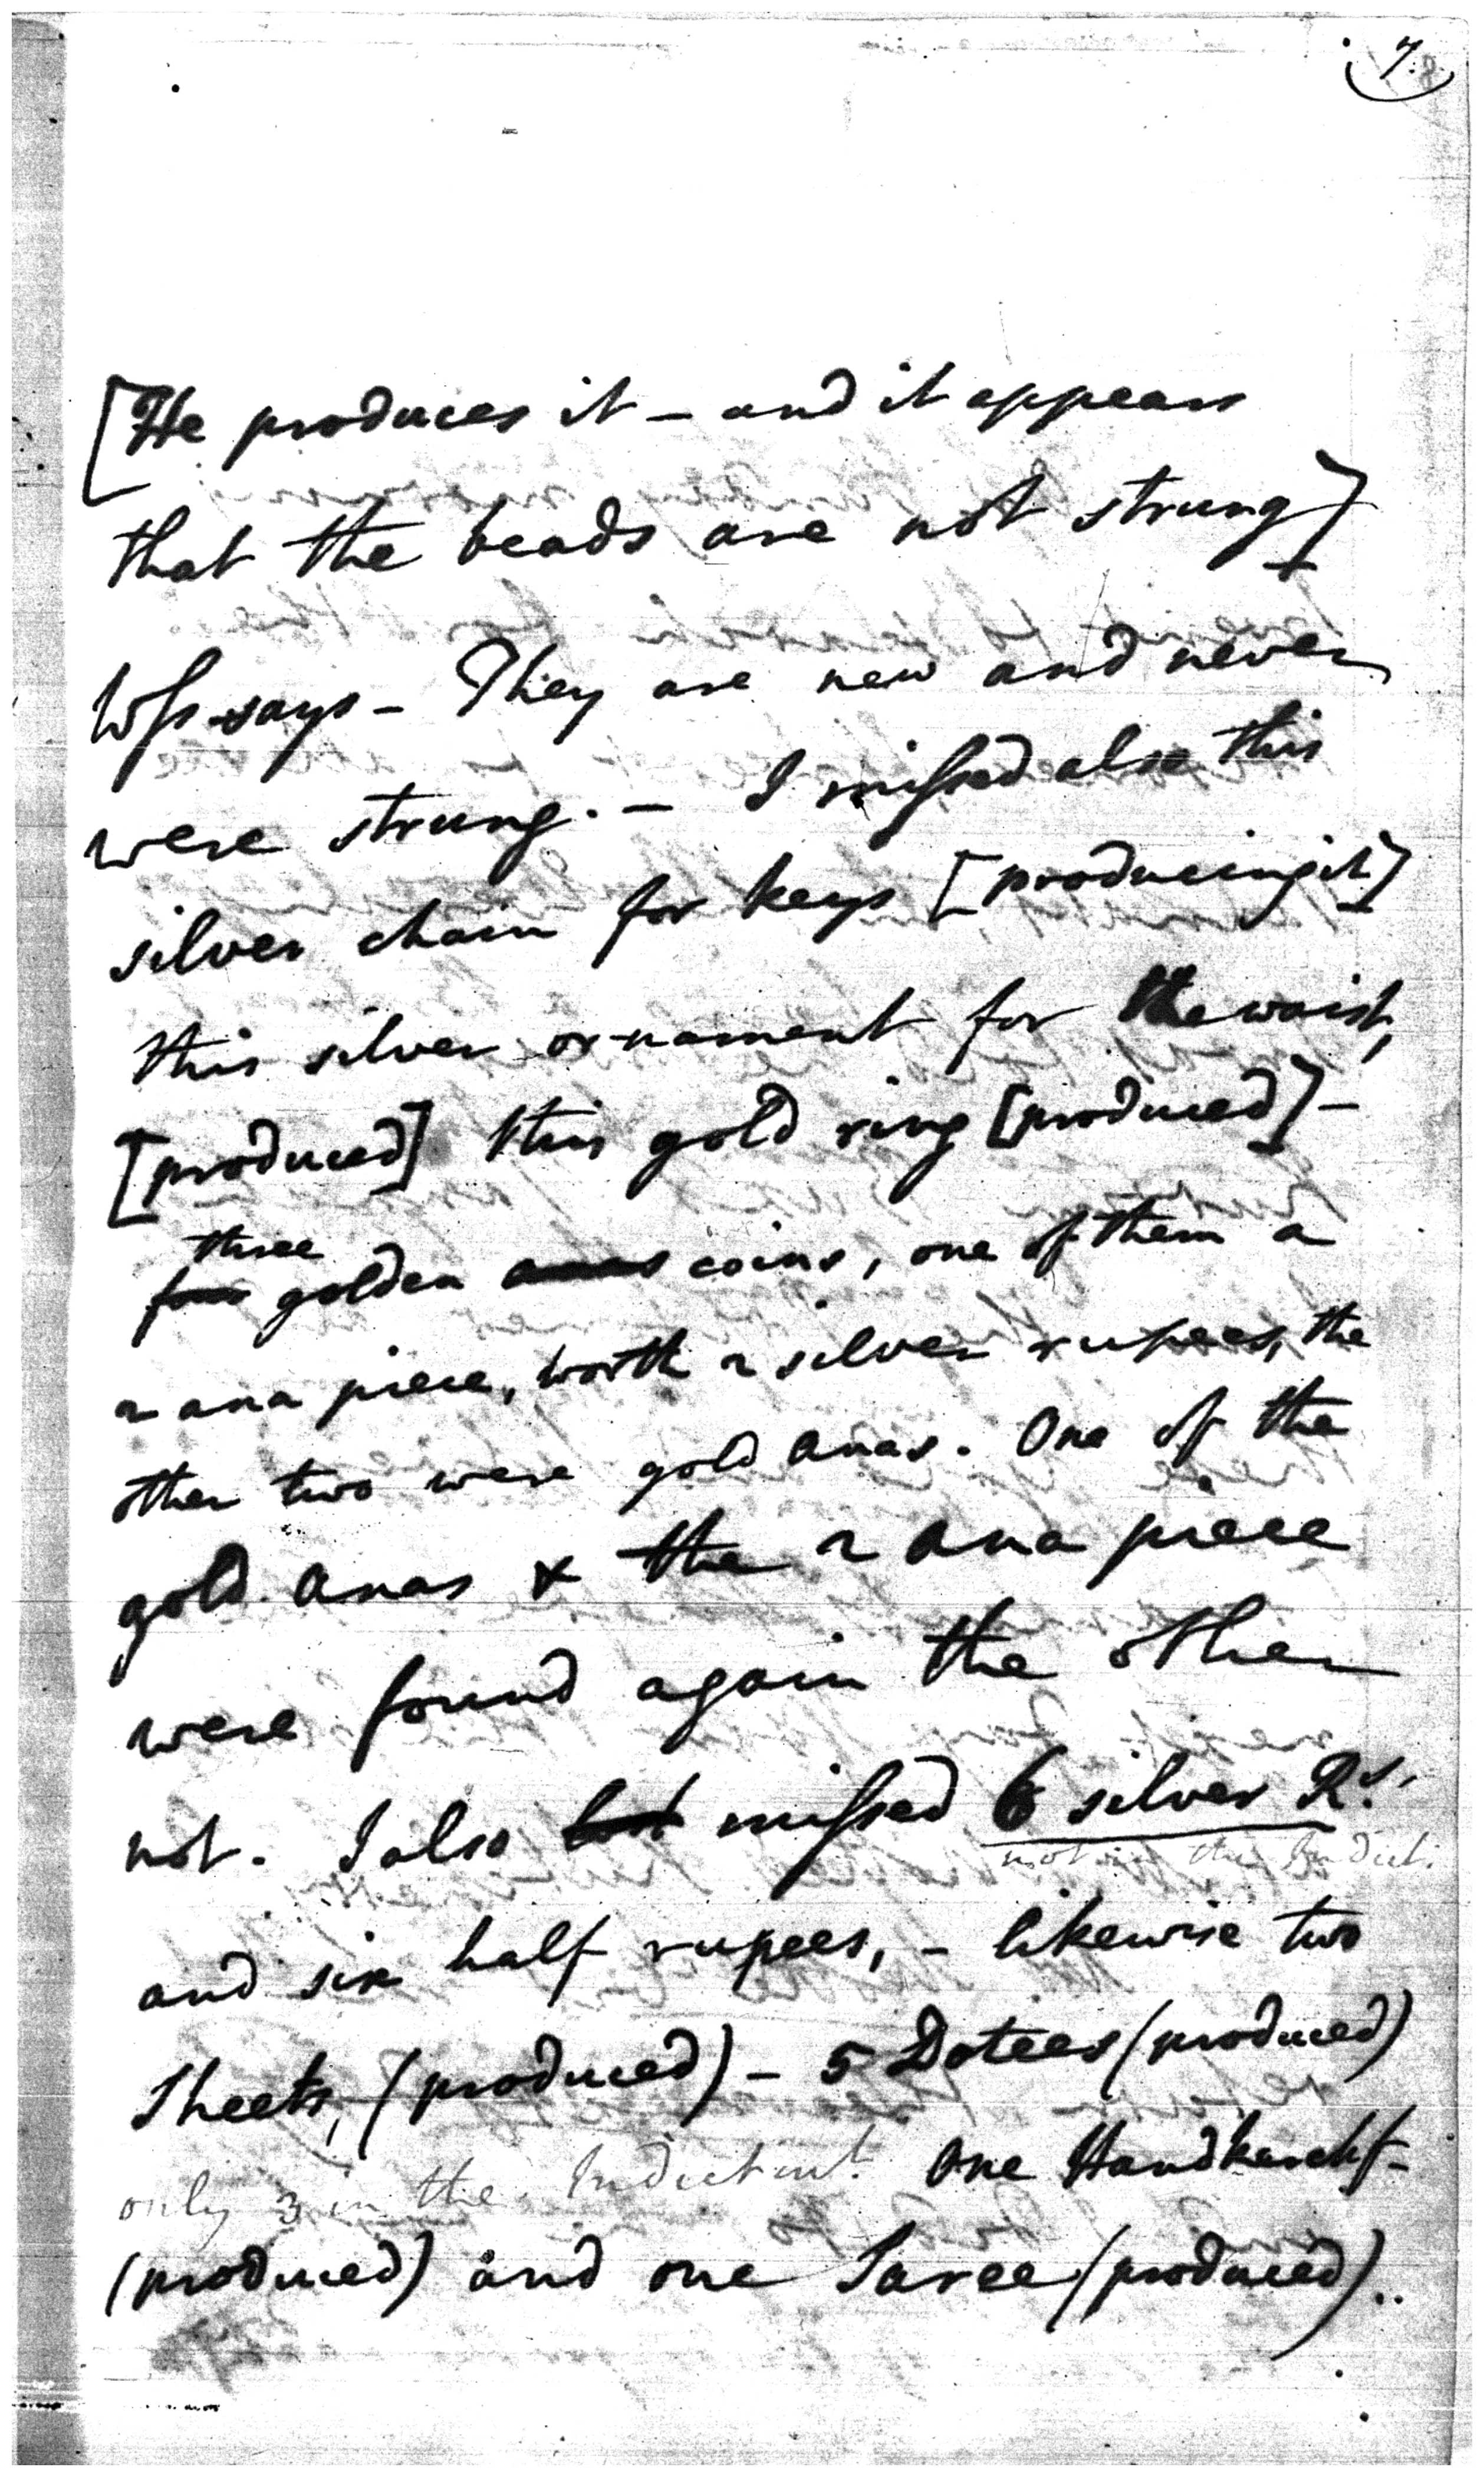 7.
[He produces it – and it appears
that the beads are not strung]
Wss says – They are new and never
were strung. – I missed also this
silver chain for keys [producing it]
this silver ornament for the waist,
[produced] this gold ring [produced] –
three
four golden anas coins, one of them a
2 ana piece, worth 2 silver rupees, the
other two were gold anas. One of the
gold anas & the 2 ana piece
were found again the other
not. I also lost missed 6 silver Rs.
not in the Indict.
and six half rupees, – likewise two
Sheets, (produced) – 5 Dotees (produced)
only 3 in the Indictmt. One Handkerchf –
(produced) and one Saree (produced)..